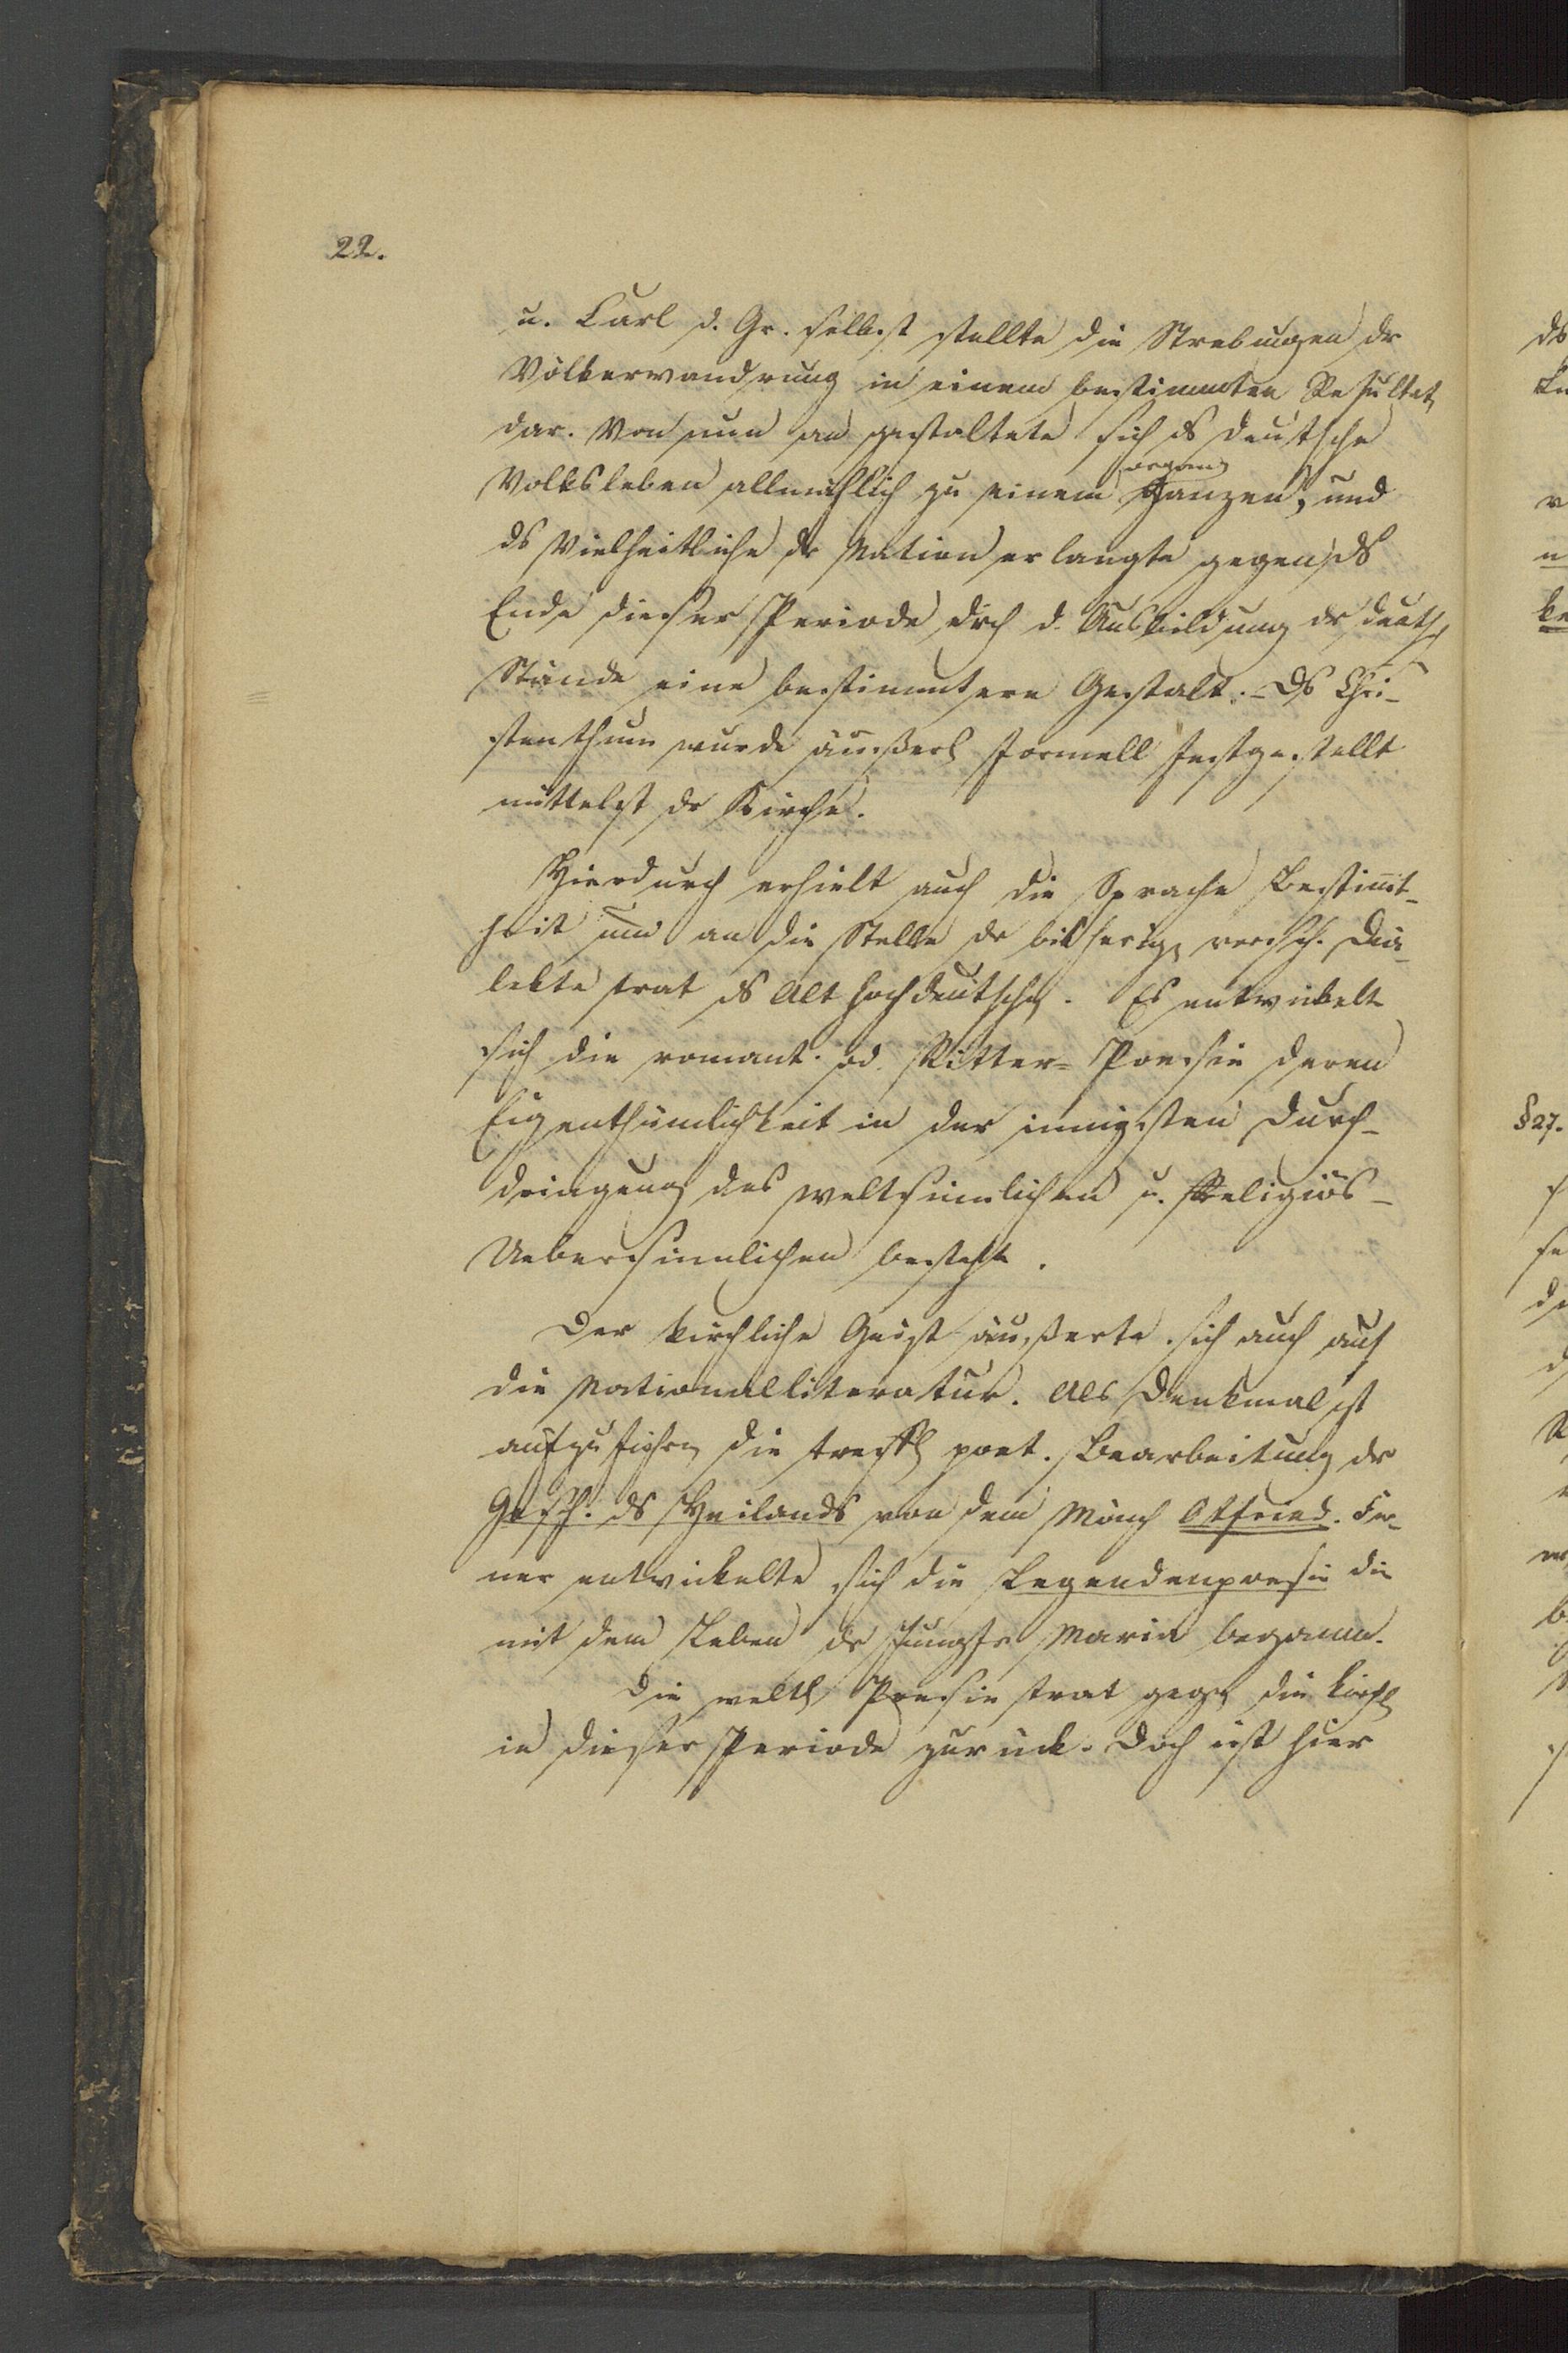 22.
u. Carl d. Gr. selbst stellte die Strebungen dr
Völkerwandrung in einem bestimmten Resultat
dar. Von nun an gestaltete sich ds deutsche
organ
Volksleben allmählich zu einem Ganzen, und
ds Vielheitliche dr Nation erlangte gegen ds
Ende dieser Periode drch d. Ausbildung dr deutsch
Stände eine bestimmtere Gestalt. – Ds Chri-
stenthum wurde äußerl formell festgestellt
mittelst dr Kirche.
Hierdurch erhielt auch die Sprache Bestimt-
heit und an die Stelle dr bisherig versch. Dia-
lekte trat ds Althochdeutsche. Es entwickelt
sich die romant. od. Ritter-Poesie deren
Eigenthümlichkeit in der innigsten Durch-
dringung des weltsinnlichen u. Religiös-
Uebersinnlichen besteht.
Der kirchliche Geist äußerte sich auch auf
die Nationalliteratur. Als Denkmal ist
aufzuführen die treffl poet. Bearbeitung dr
Gesch. ds Heilands von dem Mönch Otfried. Fer-
ner entwickelte sich die Legendenpoesie die
mit dem Leben dr Jungfr Maria begann.
Die weltl Poesie trat gegen die kirchl
in dieser Periode zurück. Doch ist hier
§ 27.